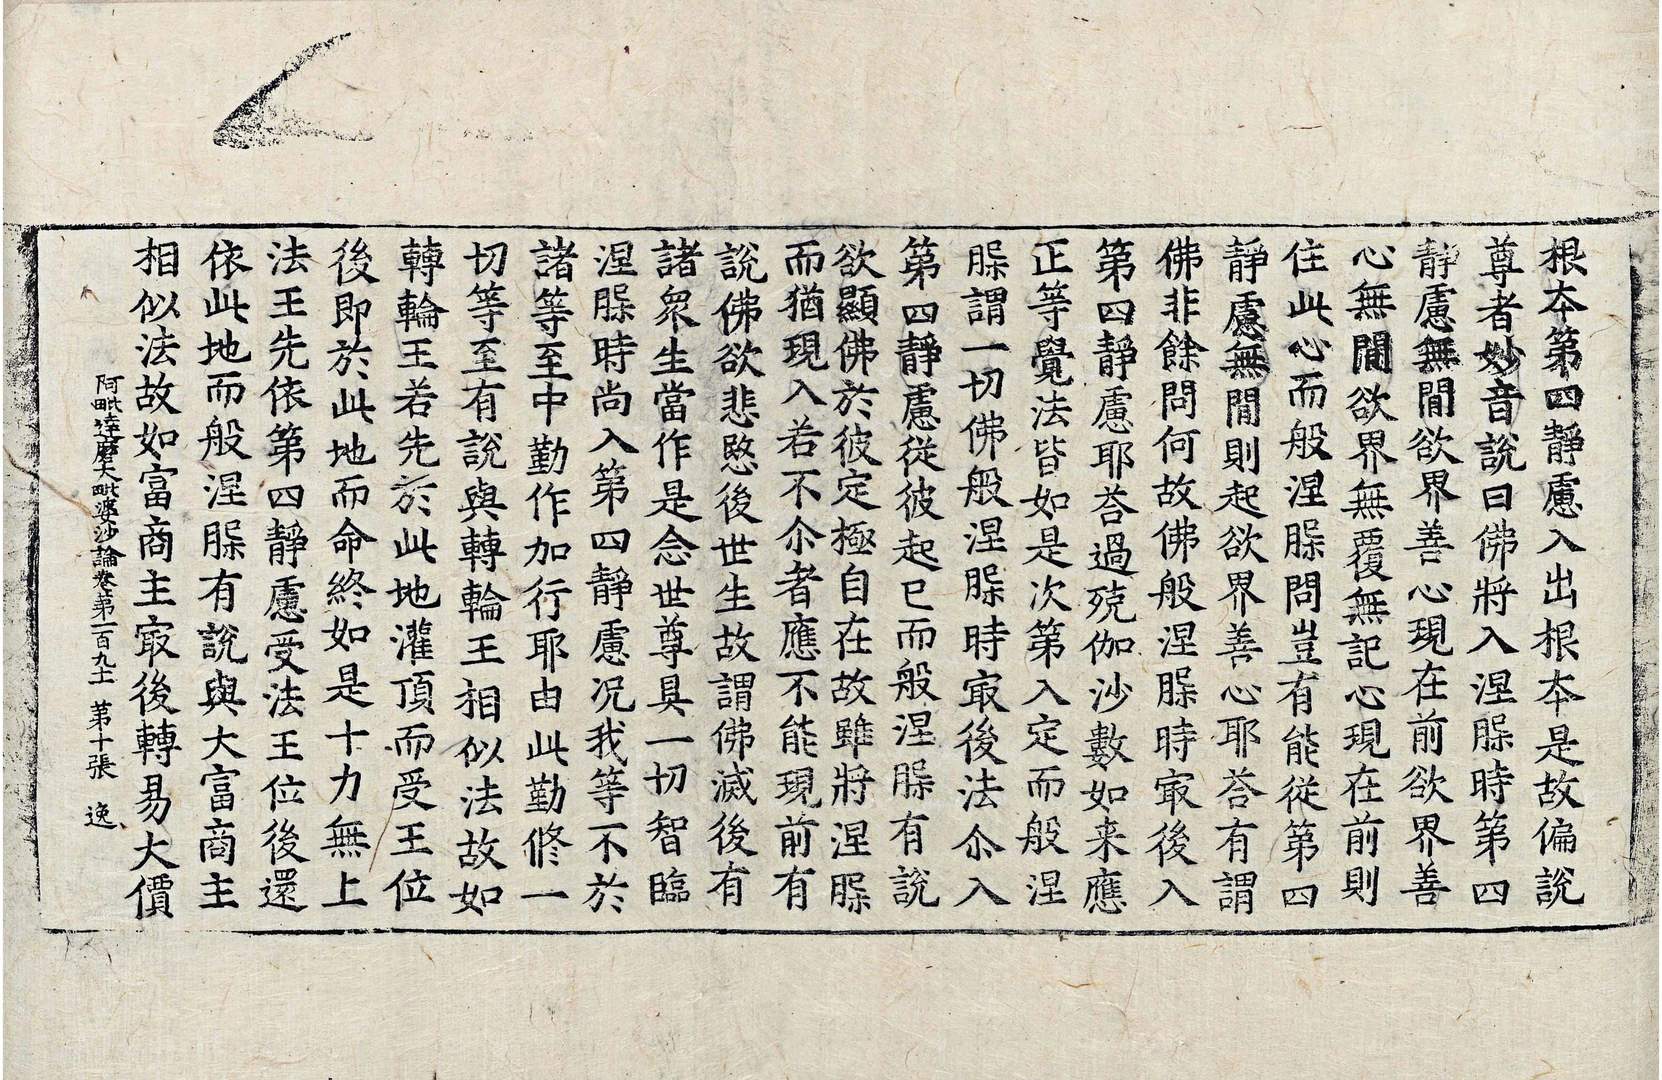 根本第四靜慮入出根本是故偏說
尊者妙音說曰佛將入涅槃時第四
靜慮無閒欲界善心現在前欲界善
心無閒欲界無覆無記心現在前則
住此心而般涅槃問豈有能從第四
靜慮無閒則起欲界善心耶荅有謂
佛非餘問何故佛般涅槃時㝡後入
第四靜慮耶荅過殑伽沙數如来應
正等覺法皆如是次第入定而般涅
槃謂一切佛般涅槃時㝡後法尒入
第四靜慮從彼起已而般涅槃有說
欲顯佛於彼定極自在故雖將涅槃
而猶現入若不尒者應不能現前有
說佛欲悲愍後世生故謂佛滅後有
諸衆生當作是念世尊具一切智臨
涅槃時尚入第四靜慮况我等不於
諸等至中勤作加行耶由此勤修一
切等至有說與轉輪王相似法故如
轉輪王若先於此地灌頂而受王位
後即於此地而命終如是十力無上
法王先依第四靜慮受法王位後還
依此地而般涅槃有說與大富商主
相似法故如富商主㝡後轉易大價
阿毗達磨大毗婆沙論卷第一百九十一 第十張 逸